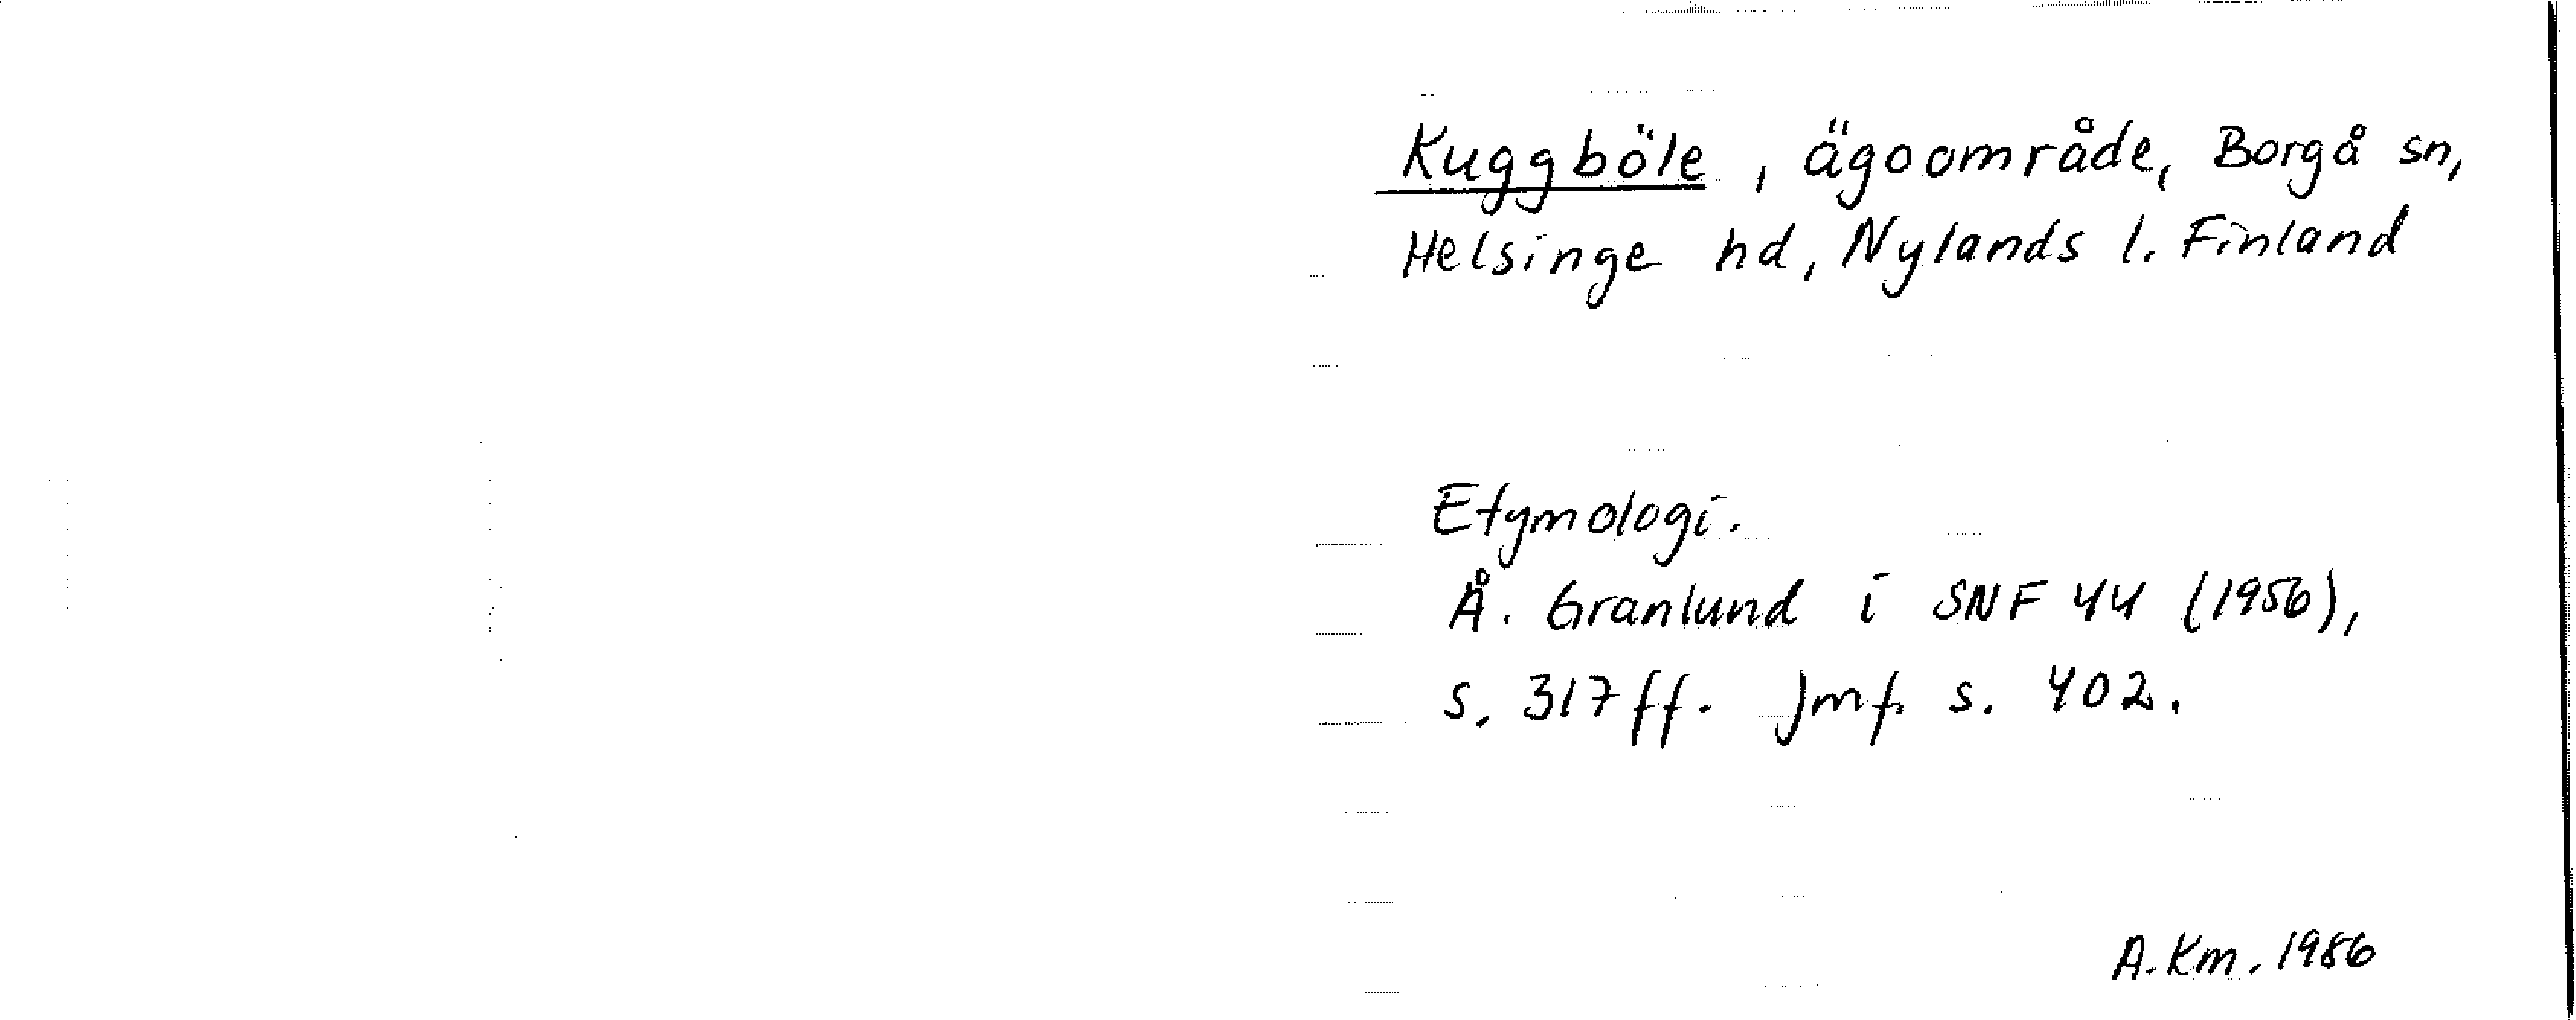 Kuggböle, ägoområde, Borgå sn,
Helsinge hd, Nylands l. Finland
Etymologi.
Å. Granlund i SNF 44 (1956),
s. 317 ff. Jmf. s. 402.
A. Km. 1986